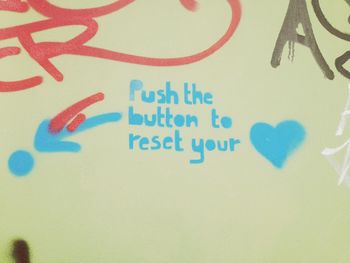 Push the
button to
reset your